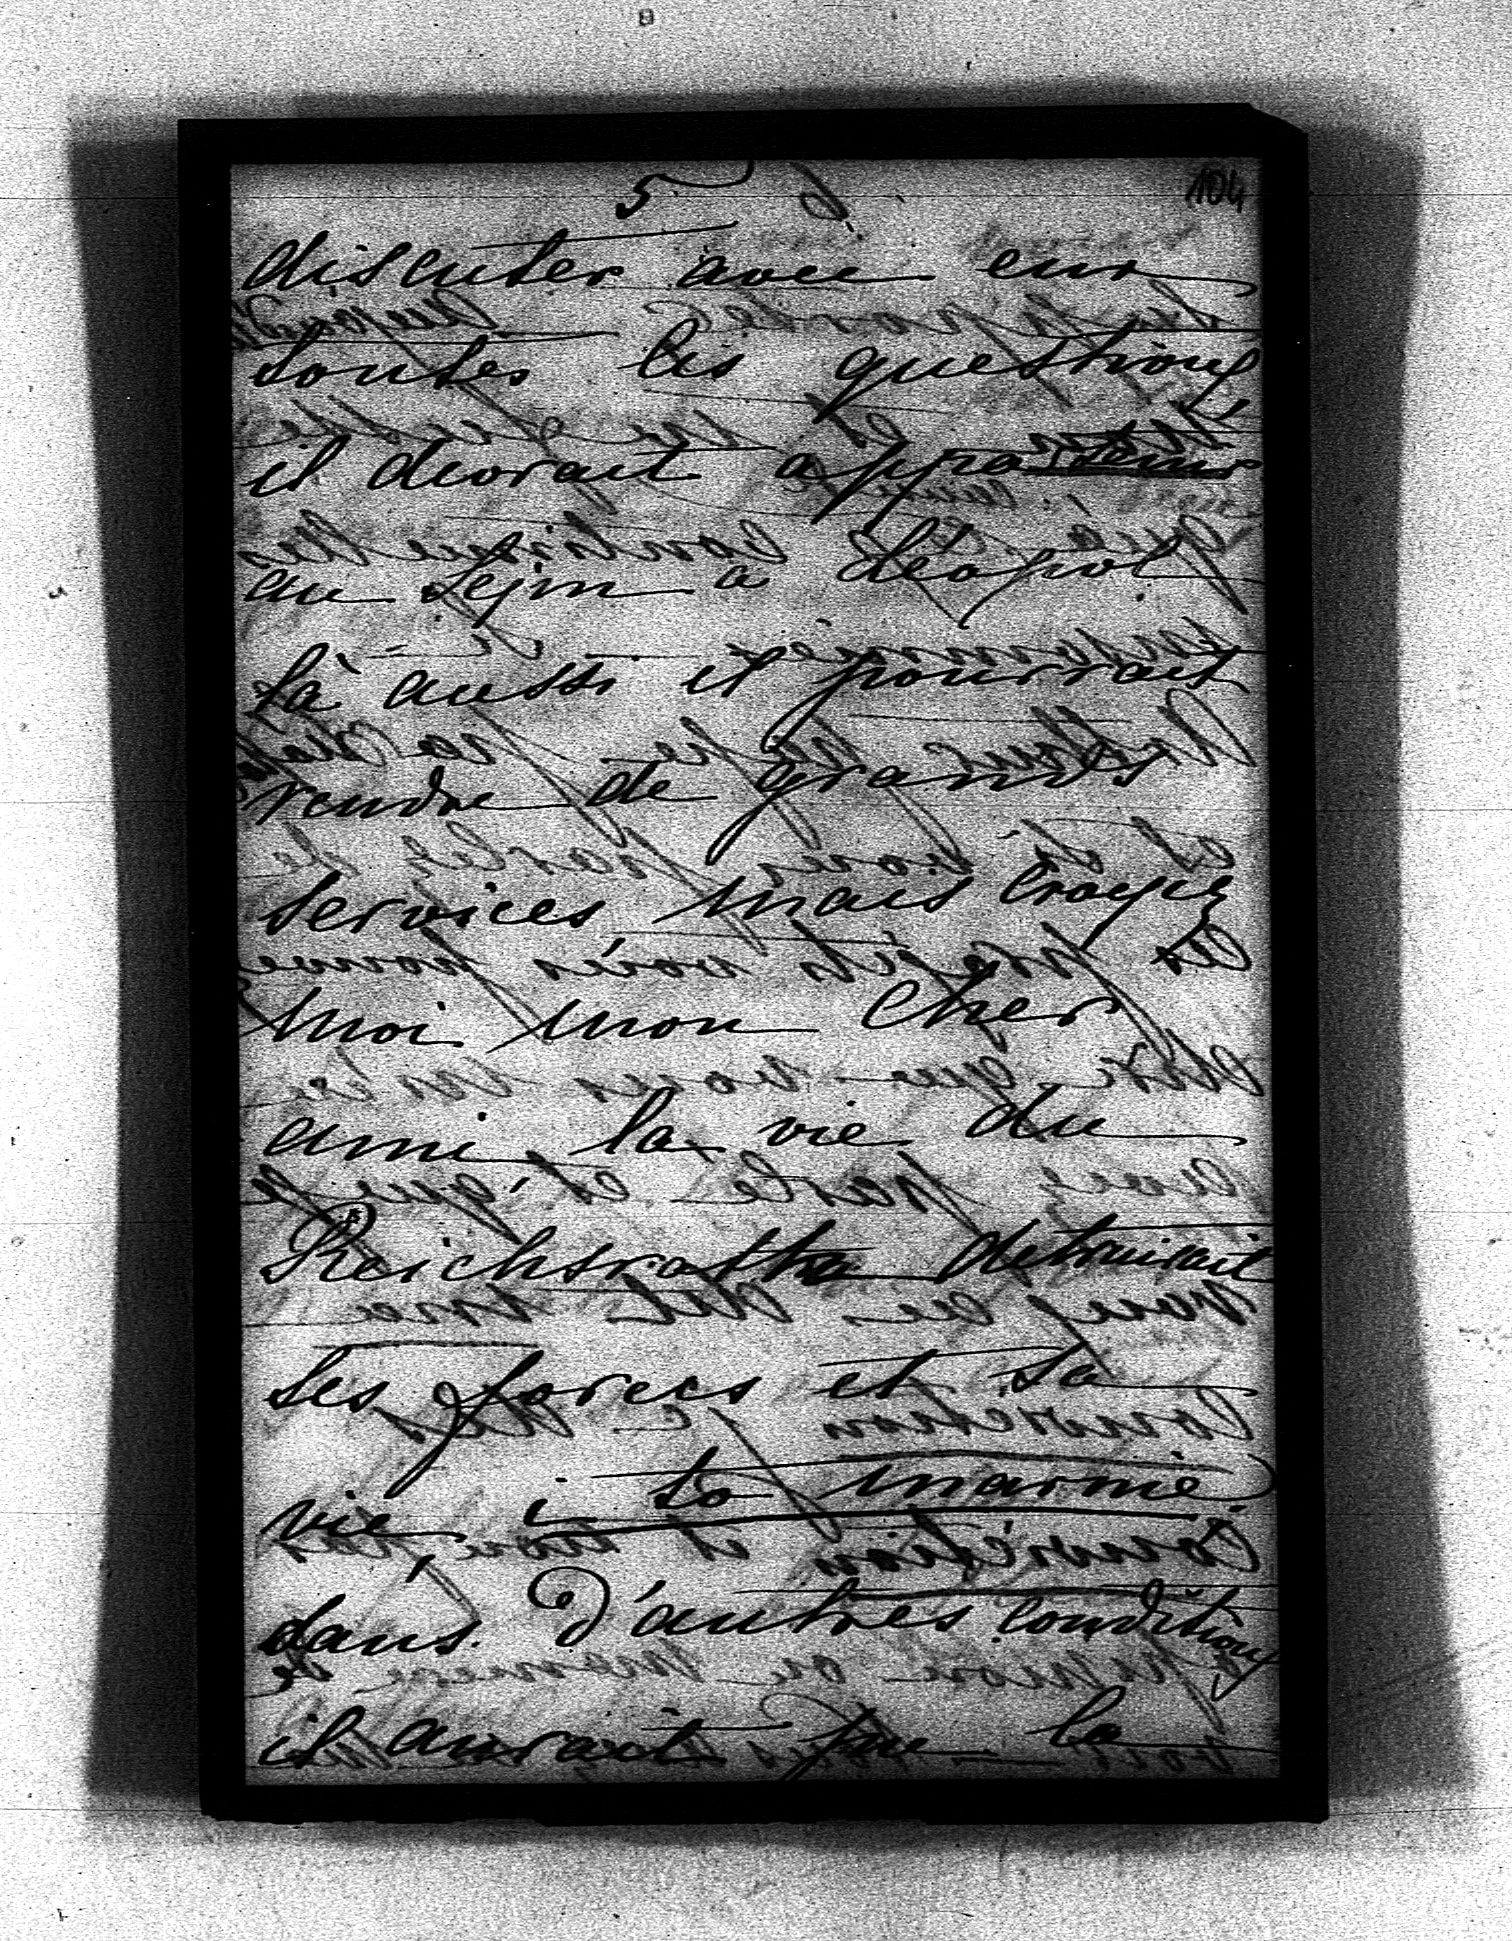 5
104
discuter avec eux
toutes les questions
il devrait appartenir
au Sejm a Léopol
là aussi il pourrait
rendre de grands
services mais croyez
moi mon cher
ami la vie du
Reichsratha detruirait
ses forces et sa
vie i to marnie.
dans d'autres conditions
il aurait pu la